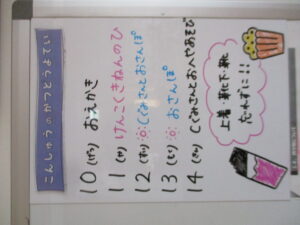 こんしゅうのかつどうよてい
10(げつ) おえかき
11(か) けんこくきねんのひ
12(すい) ぐみさんとおさんぽ
13(もく) おさんぽ
14(きん) ぐみさんとおへやあそび
上着・靴下・靴
忘れずに!!